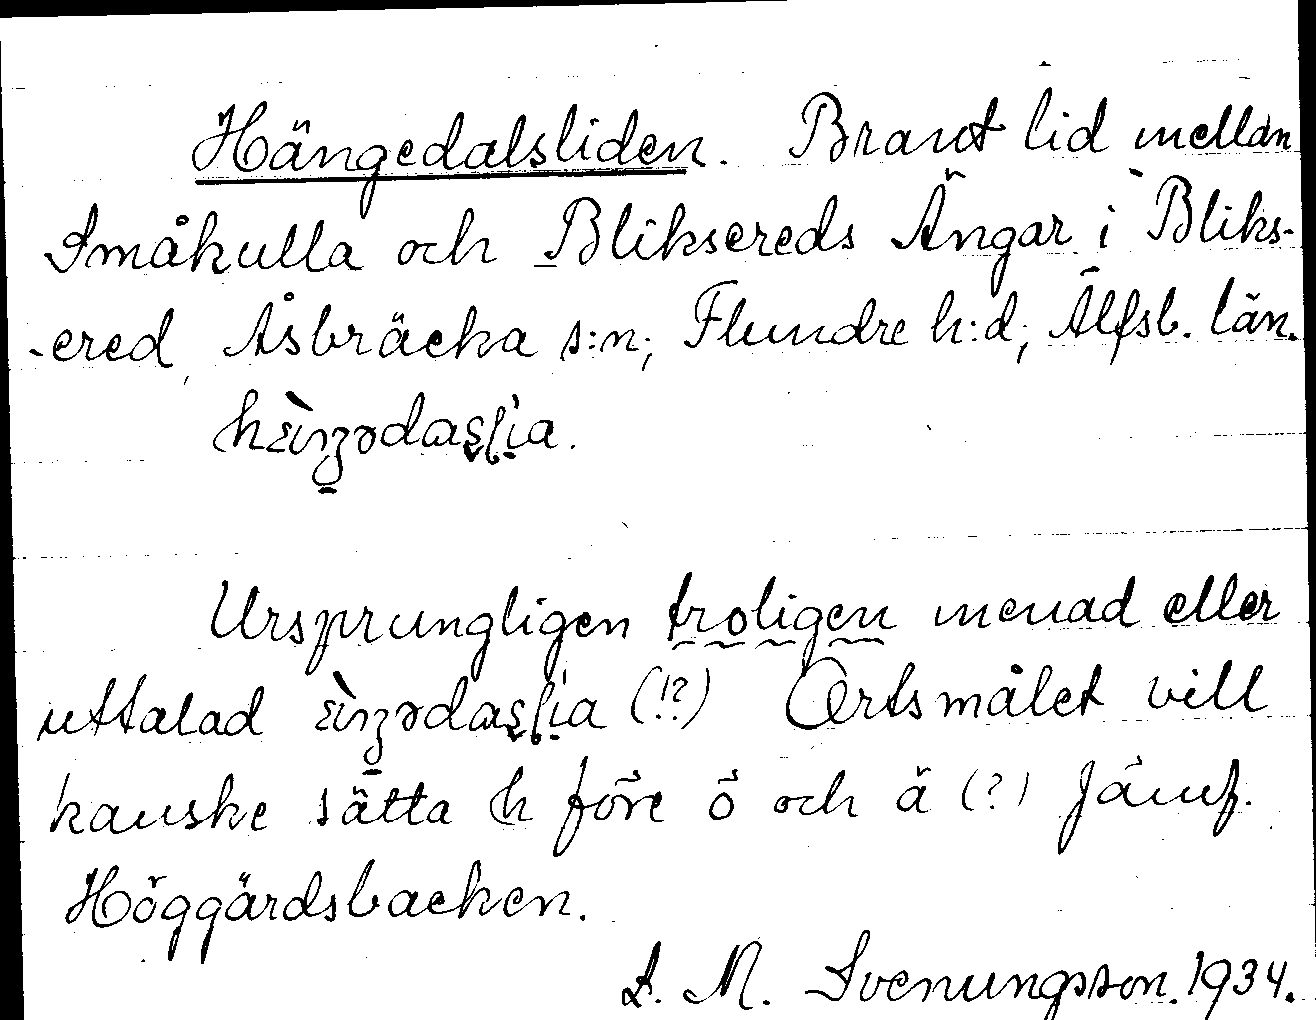 Hängedalsliden. Brant lid mellan
Småkulla och Bliksereds Ängar i Bliks-
-ered, Åsbräcka s:n; Flundre h:d; Älfsb. län.
Ursprungligen troligen menad eller
uttalad (!?) Ortsmålet vill
kanske sätta h före ö och ä (?) Jämf.
Höggärdsbacken.
S. M. Svenungsson. 1934.